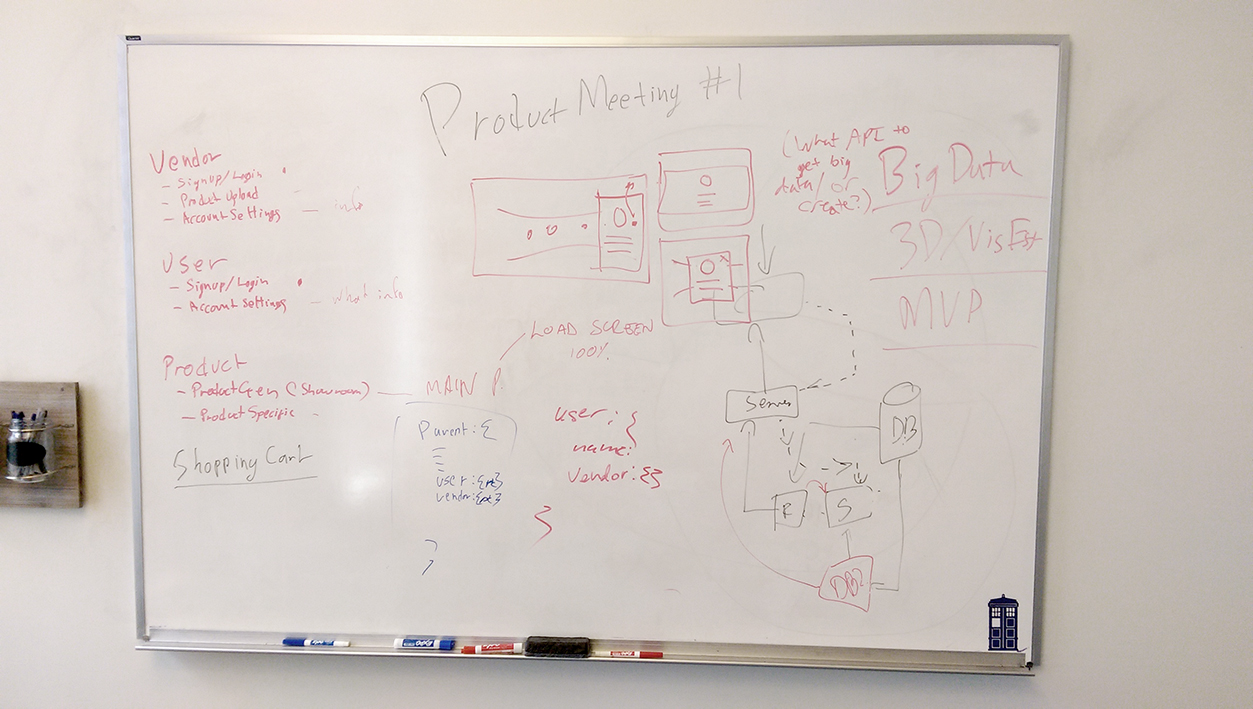 Product Meeting #1
Vendor
- Signup/Login
- Product Upload
- Account Settings — info
User
- Signup/Login
- Account Settings — what info
Product
- Product Gen (Showroom) — MAIN P.
- Product Specific -
Shopping Cart
LOAD SCREEN
100%
Parent: {
user: {
vendor: {
}
user: {
name:
vendor: {}
}
(What API to
get big
data/ or
create?)
Big Data
3D/VisEst
MVP
Server
DB
R
S
DB2
EXPO
EXPO